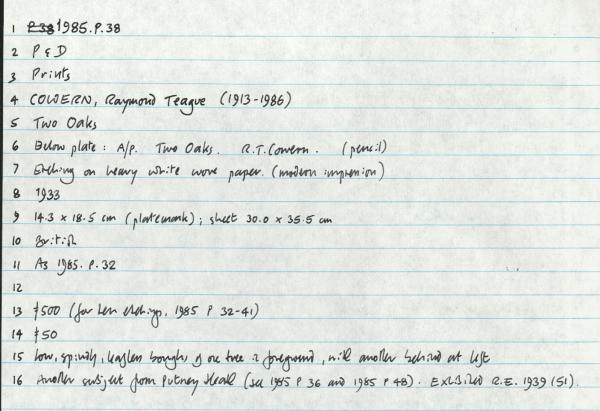 1 P 38 1985.P.38
2 P & D
3 Prints
4 COWERN, Raymond Teague (1913-1986)
5 Two Oaks
6 Below plate: A/p. Two Oaks. R.T. Cowern. (pencil)
7 Etching on heavy white wove paper. (modern impression)
8 1933
9 14.3 x 18.5 cm (platemark); sheet 30.0 x 35.5 cm
10 British
11 As 1985.P.32
12
13 £500 (for ten etchings, 1985 P 32-41)
14 £50
15 Low, spindly, leafless boughs of one tree in foreground, with another behind at left
16 Another subject from Putney Heath (see 1985 P 36 and 1985 P 48). Exhibited R.E. 1939 (51).